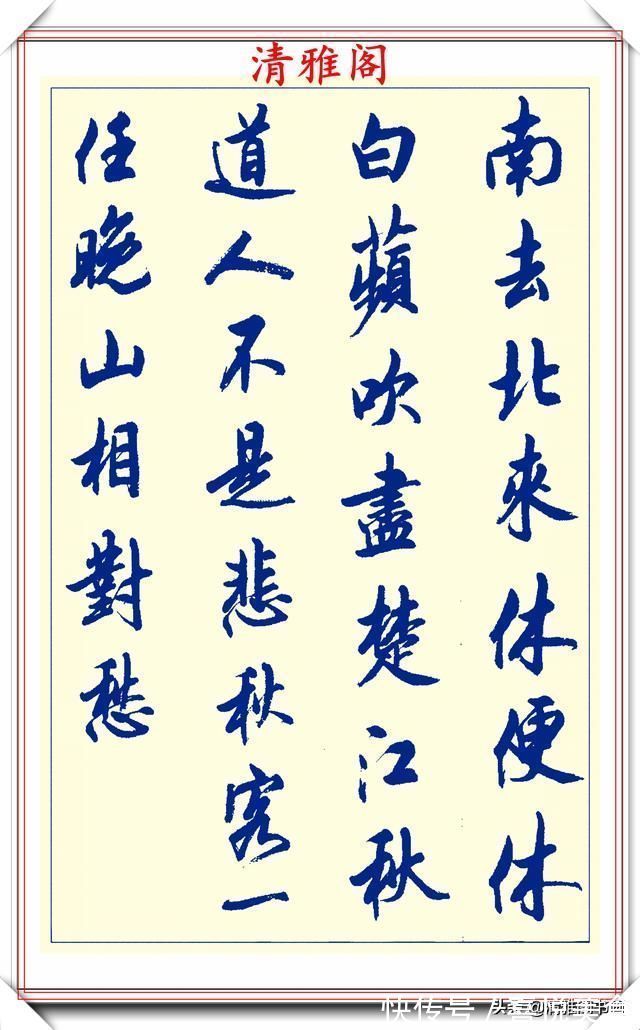 清雅阁
南去北來休便休
白蘋吹盡楚江秋
道人不是悲秋客一
任晚山相對愁